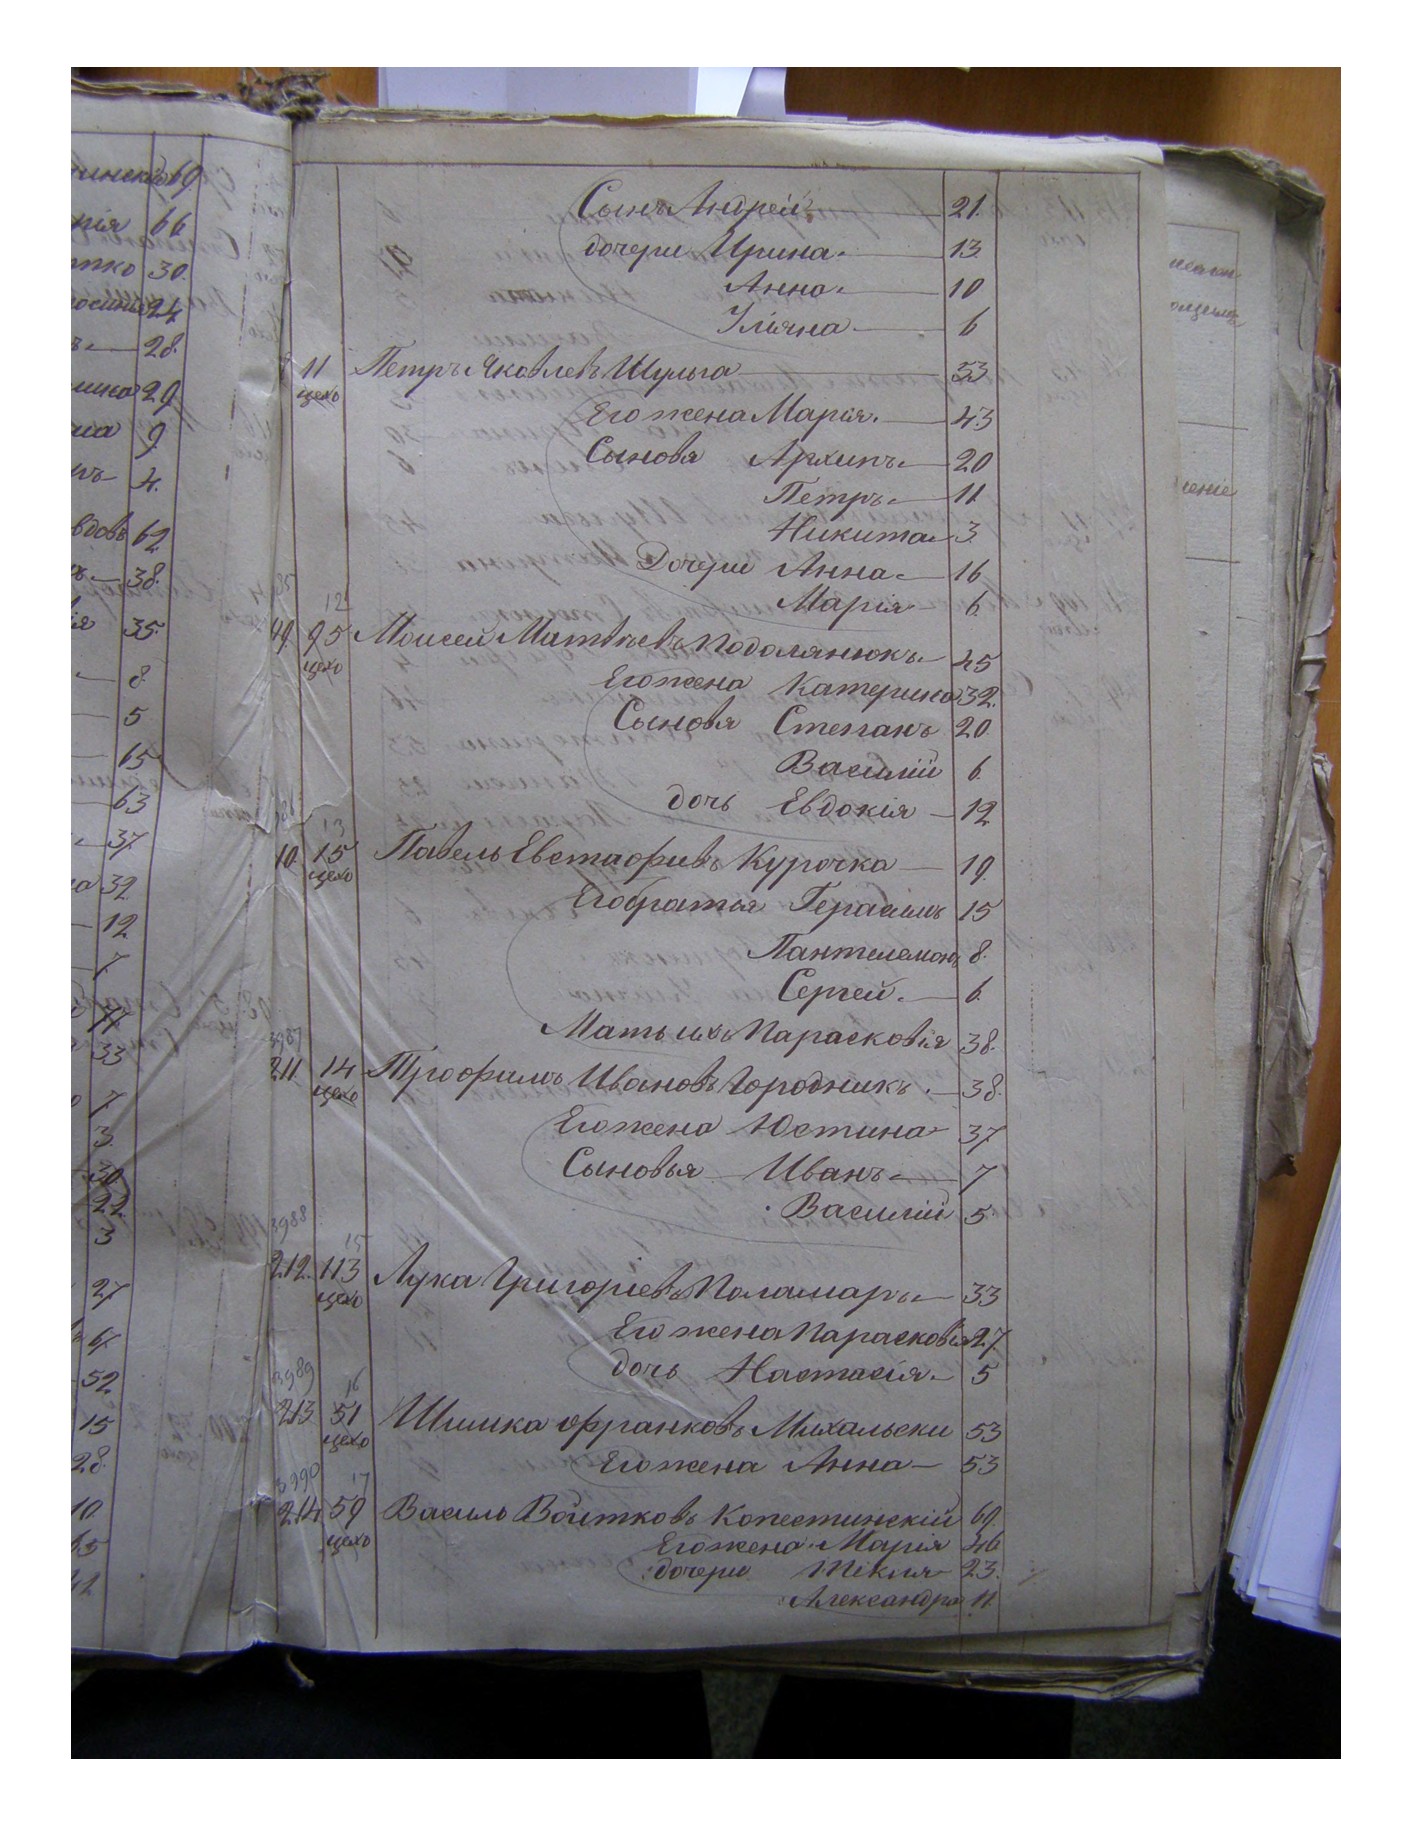 Сынъ Андрей 21.
дочери Ирина 13
Анна 10
Уліяна 6
11 Петръ Яковлевъ Шульга 53
цехо
Его жена Марія 43
Сыновя Архипъ 20
Петръ 11
Никита 3
Дочери Анна 16
Марія 6.
12
95 Моисей Матвѣевъ Подолянюкъ 45
цехо
Его жена Катерина 32.
Сыновя Степанъ 20
Василій 6.
дочь Евдокія 12
13
10. 15 Павель Евстафіевъ Курочка 19.
цехо
Его братья Герасимъ 15
Пантелемонъ 8.
Сергей 6.
Мать ихъ Парасковія 38.
3987
211. 14 Трофимъ Ивановъ Городникъ 38.
цехо
Его жена Юстина 37
Сыновья Иванъ 7
Василій 5.
3988
15
212. 113 Лука Григоріевъ Паламаръ 33
цехо
Его жена Парасковія 27.
дочь Настасія 5
3989
16
213 51 Шимка Франковъ Михальски 53
цехо
Его жена Анна 53
3990
17
214 59 Василь Войтковъ Копестинскій 69.
цехо
Его жена Марія 46
дочери Текля 23.
Александра 11.
66
30.
24
28.
29
9.
4.
вдовъ 62
38.
35.
8.
5
65
63
37
32
12
7
33
7.
3.
30
22
3
27
52
15
28.
10.